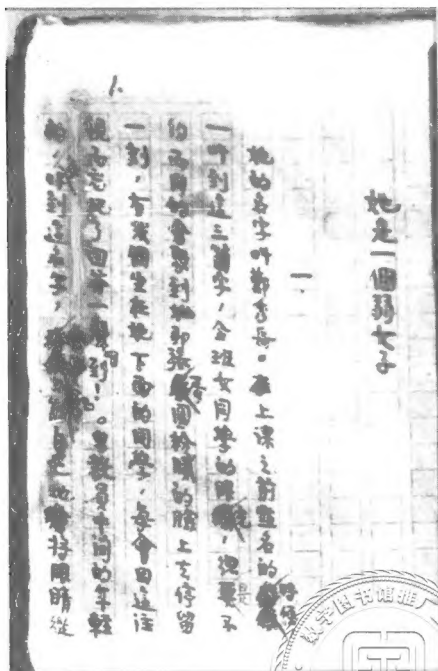 她是一個弱女子
一
她的名字叫鄭秀岳。在上课之前點名的時候
一叫到這三箇字,全班女同學的眼光,總要不
約而同的會聚到她那張圓粉膩的臉上去停留
一刻,有幾個坐在她下面的同學,每會因這注
視而忘記了回答一聲「到!」。男教員中間的年輕
的,叫到這名字,能自已地將眼睛從
1.
数字图书馆推广